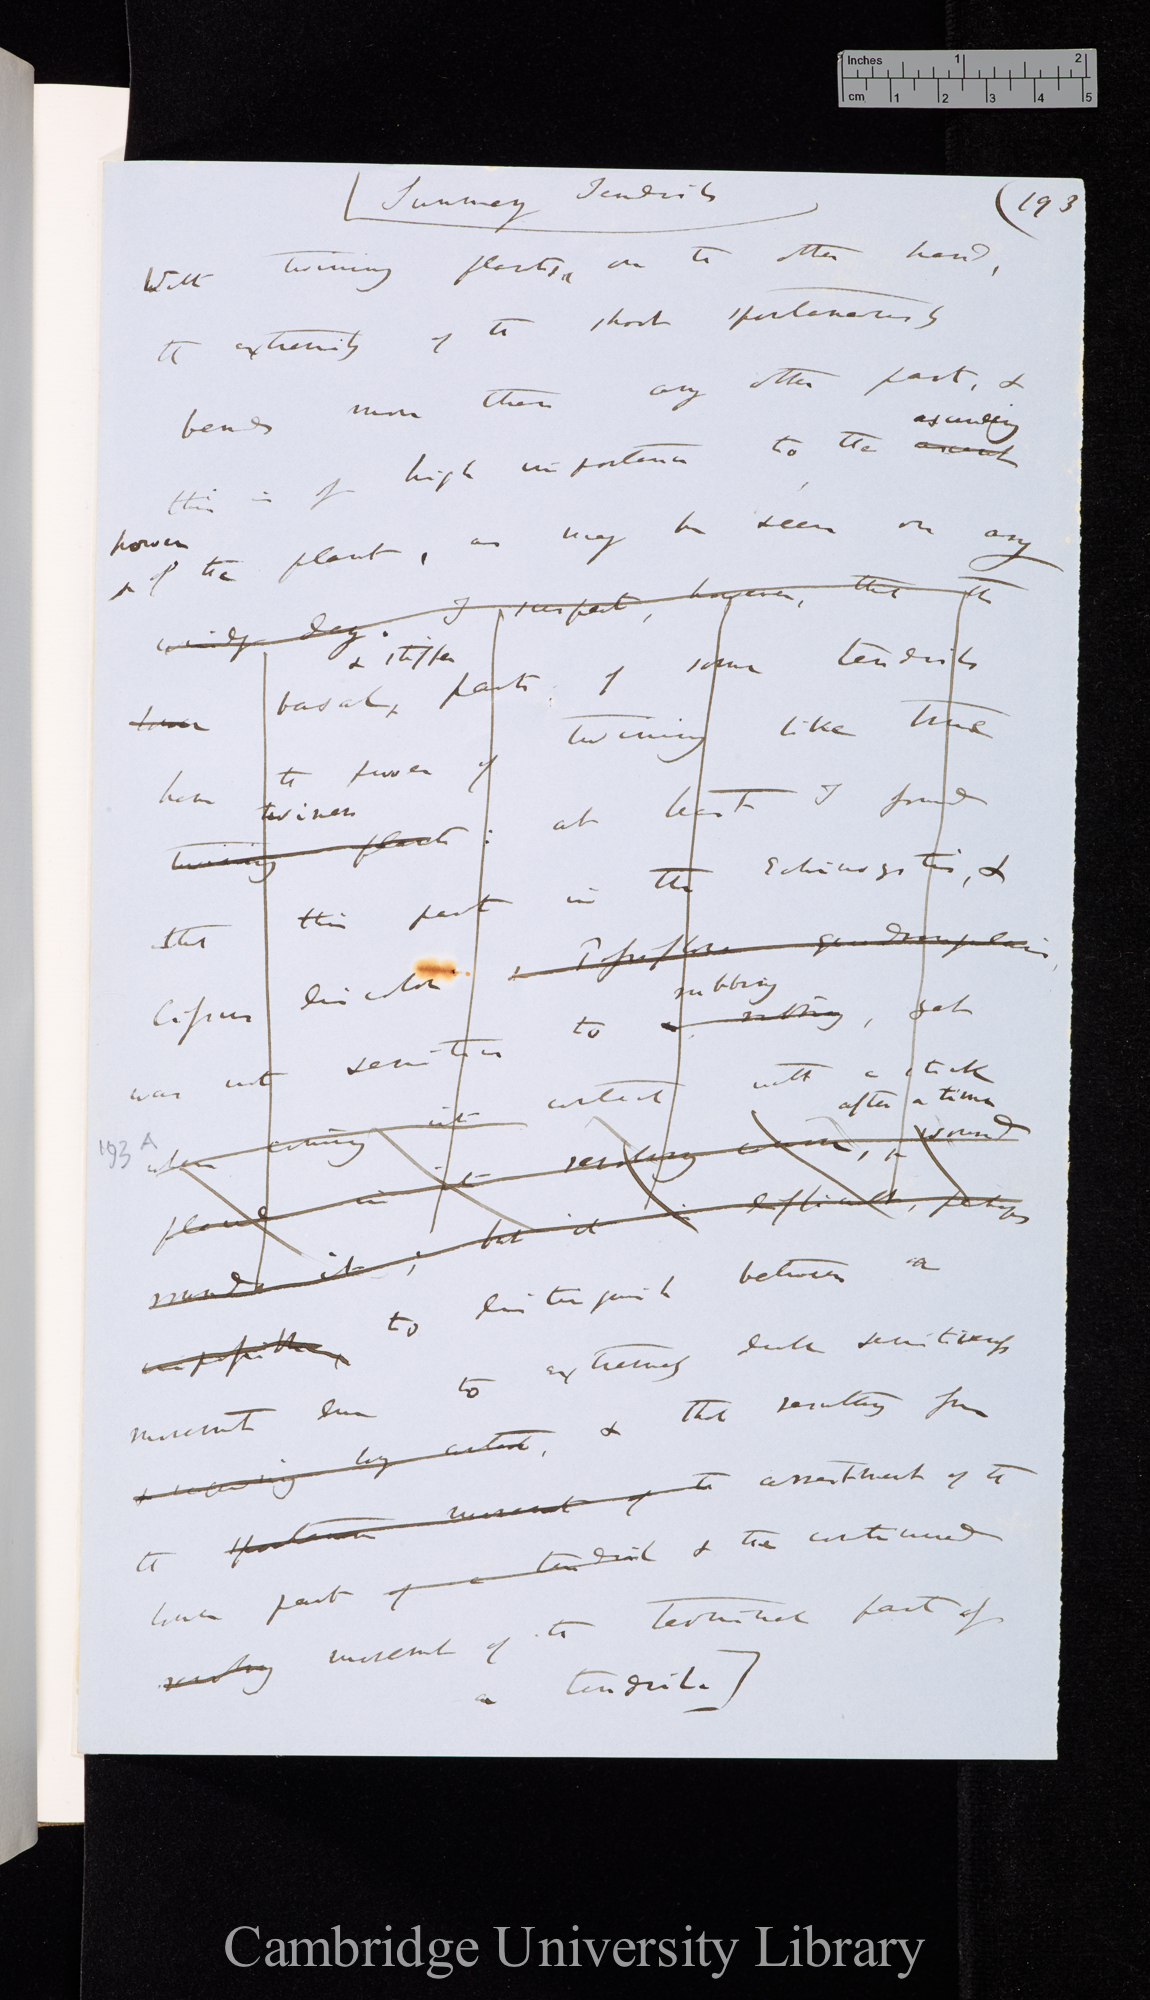 Inches 1 2
cm 1 2 3 4 5
[Summary Tendrils
(193
With twining plants, on the other hand,
the extremity of the shoot spontaneously
bends more than any other part, &
ascending
this is of high importance to the ascent
power
of the plant, as may be seen on any
windy day. I suspect, however, that the
& stiffer
lower basal parts of some tendrils
have the power of twining like true
twiners
twining plants: at least I found
that this part in the Echinocystis, &
Cissus discolor & Passiflora quadrangularis,
rubbing
was not sensitive to a rubbing, yet
when coming in contact with a stick
after a time
193 A
placed in its revolving course, it wound
round it; but it is difficult, perhaps
impossible, to distinguish between a
movement due to extremely dull sensitiveness
& requiring long contact, & that resulting from
the spontaneous movement of the arrestment of the
lower part of a tendril & the continued
revolving movement of the terminal part of
a tendril.]
Cambridge University Library